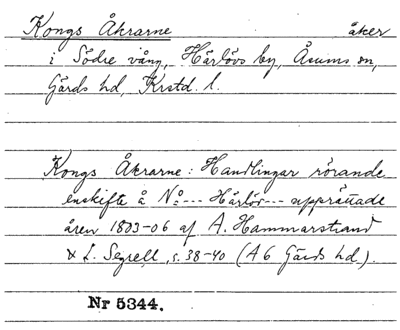 Kongs Åkrarne åker
i Södre vång, Härlövs by, Åsums sn,
Gärds hd, Krstd. l.
Kongs Åkrarne: Handlingar rörande
enskifte å No --- Härlöv --- upprättade
åren 1803-06 af A. Hammarstrand
& L. Segrell, s. 38-40 (A 6 Gärds hd.).
Nr 5344.